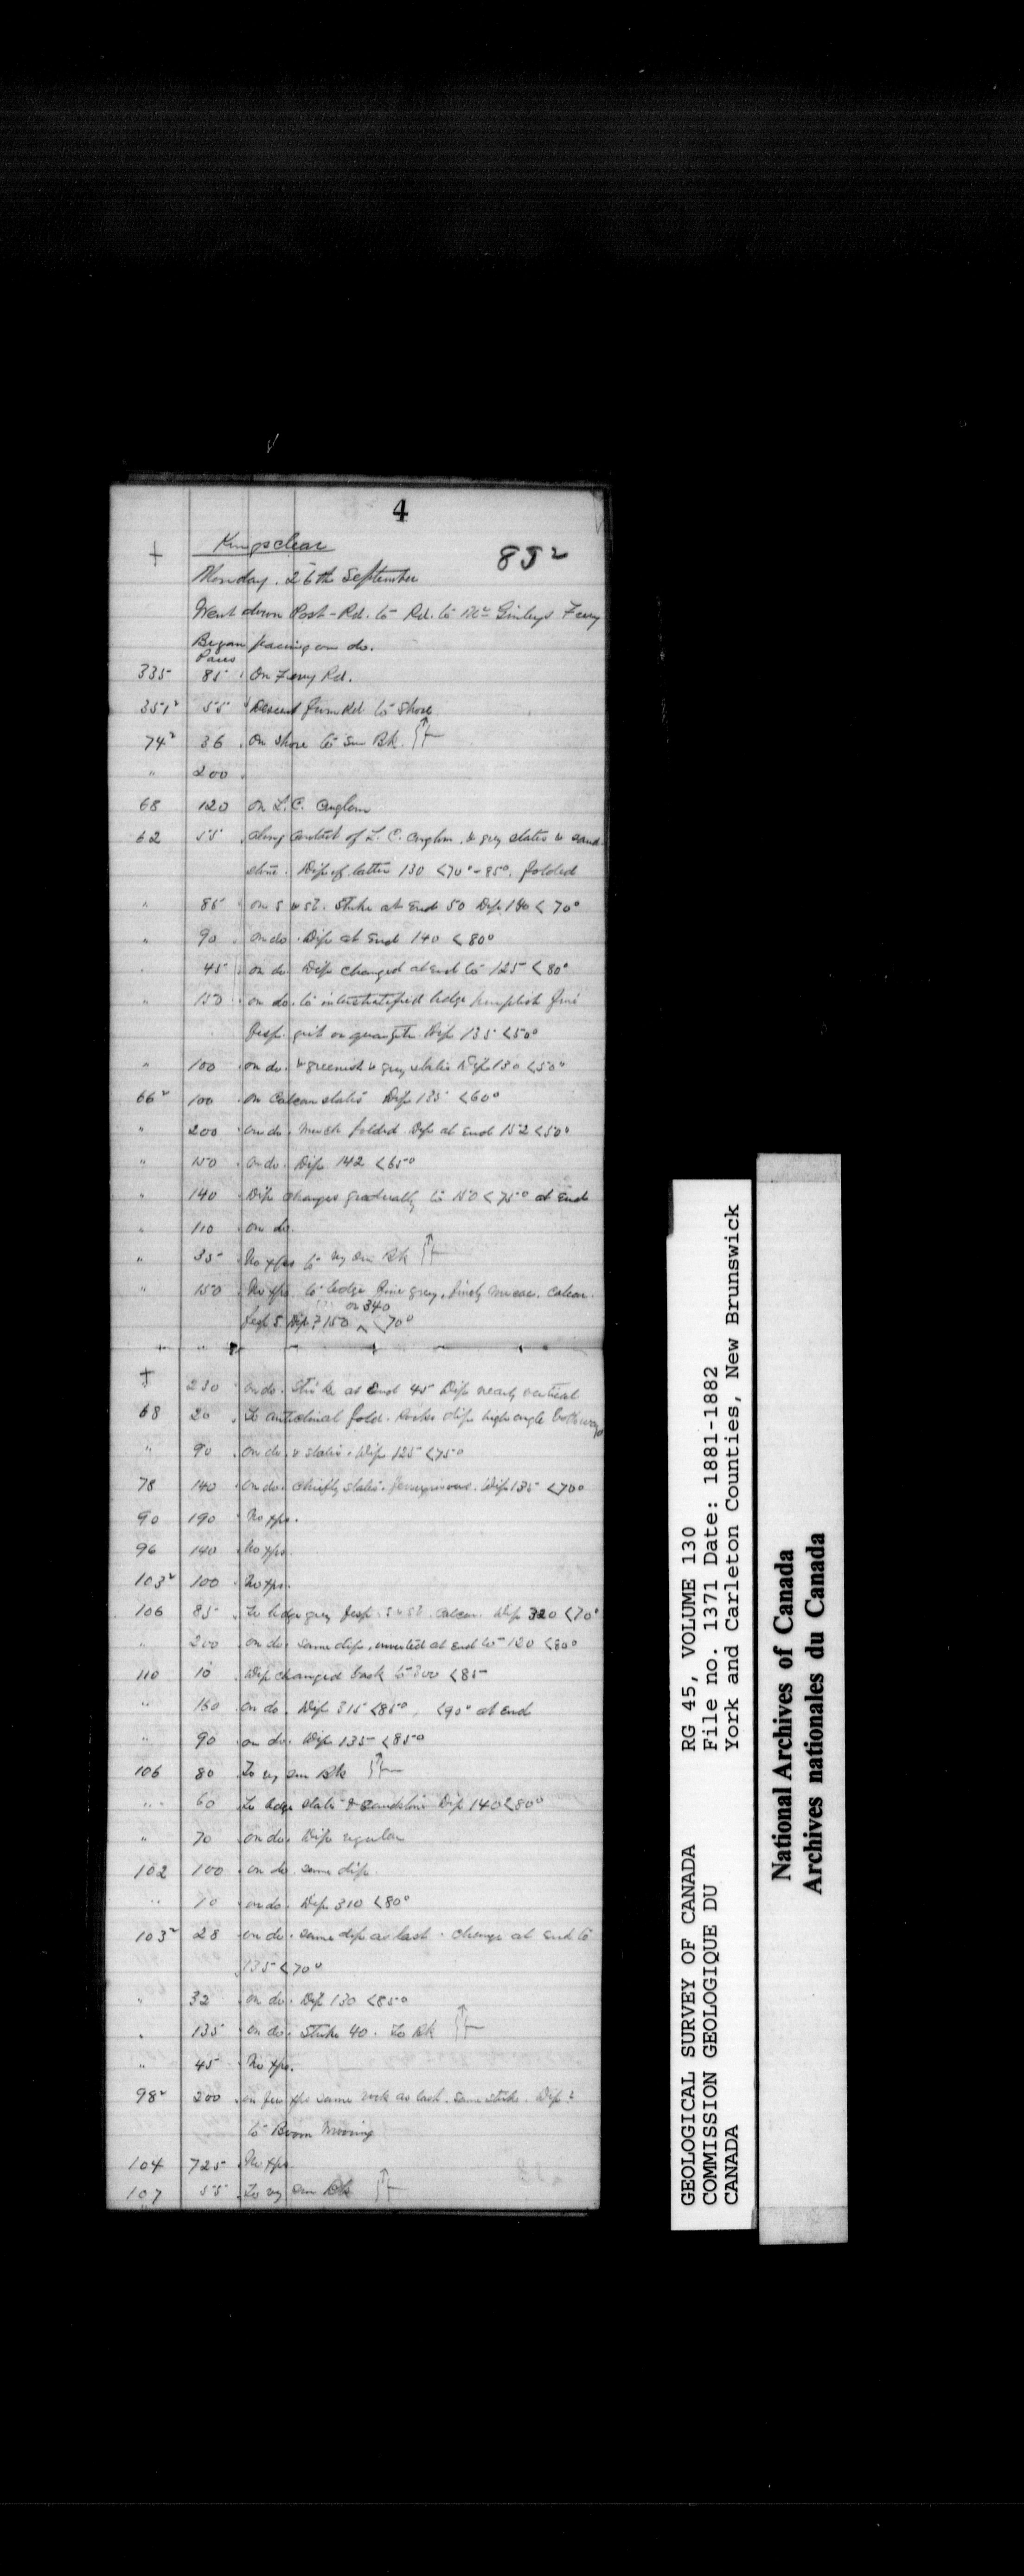 4
Kingsclear
85²
Monday. 26th September
Went down Post-Rd. to Rd. to Mc Ginleys Ferry
Began pacing on do.
Paces
335 85 On Ferry Rd.
351² 55 Descent from Rd to Shore
74² 36 On shore to sm Bk.
" 200
68 120 on L. C. Conglom
62 55 along contact of L. C. conglom. & grey slates & sand-
stone. Dip of latter 130 <70°-85°. folded
" 85 on s & st. Strike at end 50 Dip 140 < 70°
" 90 on do. Dip at end 140 <80°
" 45 on do Dip changed at end to 125 <80°
" 150 on do. to interstratified ledge purplish fine
felsp. grit or quartzite. Dip 135 <50°
" 100 on do. & greenish & grey slates Dip 130 <50°
66² 100 on Calcar slates Dip 135 <60°
" 200 on do. much folded. Dip at end 152 <50°
" 150 on do. Dip 142 <65°
" 140 Dip changes gradually to 150 <75° at end
" 110 on do.
" 35 No xps to vy sm Bk
" 150 No xps. to ledge fine grey, finely micac. calcar.
felsp S. Dip ? 150 or 340 <70°
230 on do. Strike at end 45 Dip nearly vertical
68 20 To anticlinal fold. Rocks dip high angle both ways
" 90 on do. & slates. Dip 125 <75°
78 140 on do. chiefly slates. ferruginous. Dip 135 <70°
90 190 No xps.
96 140 No xps
103² 100 No xps.
106 85 To ledge grey felsp. S & St. calcar. Dip 320 <70°
" 200 on do. same dip, inverted at end to 120 <80°
110 10 Dip changed back to 300 <85
" 160 on do. Dip 315 <85°, <90° at end
" 90 on do. Dip 135 <85°
106 80 To vy sm Bk
" 60 To ledge slates & sandstone Dip 140 <80°
" 70 on do. Dip regular
102 100 on do. same dip.
" 10 on do. Dip 310 <80°
103² 28 on do. same dip as last. change at end to
135 <70°
" 32 on do. Dip 130 <85°
" 135 on do. Strike 40. To Bk
" 45 No xps.
98² 200 on few xps same rock as last. same strike. Dip ?
to Boom Mooring
104 725 No xps
107 55 To vy sm Bk
GEOLOGICAL SURVEY OF CANADA
COMMISSION GEOLOGIQUE DU
CANADA
RG 45, VOLUME 130
File no. 1371 Date: 1881-1882
York and Carleton Counties, New Brunswick
National Archives of Canada
Archives nationales du Canada